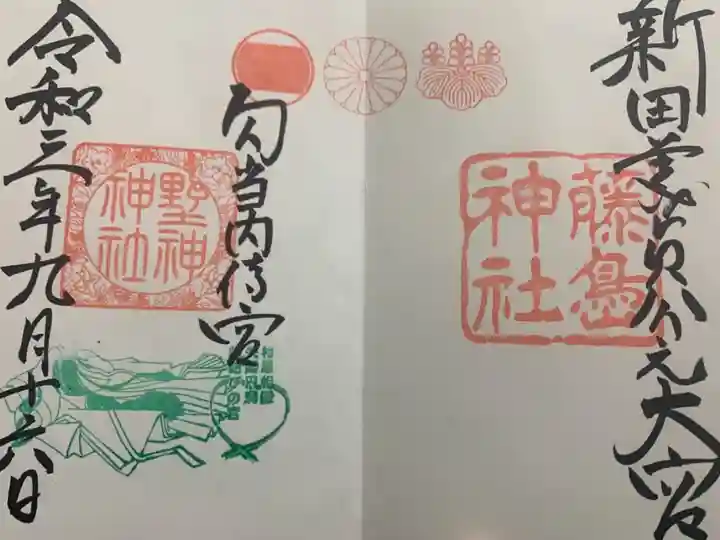 新田義貞公之大宮
藤島
神社
勾当内侍宮
野神
神社
令和三年九月十六日